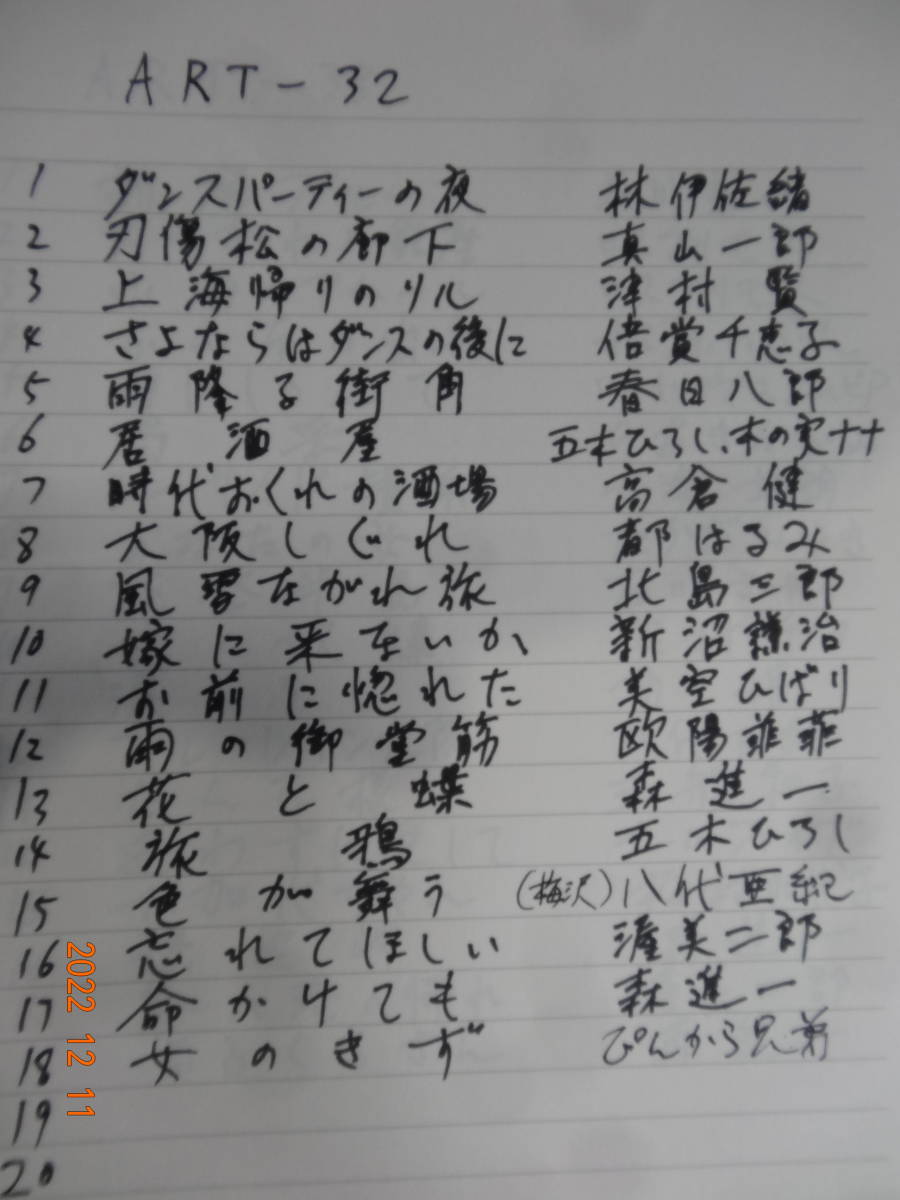 ART-32
1 ダンスパーティーの夜 林伊佐緒
2 刃傷松の廊下 真山一郎
3 上海帰りのリル 津村賢
4 さよならはダンスの後に 倍賞千恵子
5 雨降る街角 春日八郎
6 居酒屋 五木ひろし、木の実ナナ
7 時代おくれの酒場 高倉健
8 大阪しぐれ 都はるみ
9 風雪ながれ旅 北島三郎
10 嫁に来ないか 新沼謙治
11 お前に惚れた 美空ひばり
12 雨の御堂筋 欧陽菲菲
13 花と蝶 森進一
14 旅鴉 五木ひろし
15 色が舞う (梅沢)八代亜紀
16 忘れてほしい 渥美二郎
17 命かけても 森進一
18 女のきず ぴんから兄弟
19
20
2022 12 11